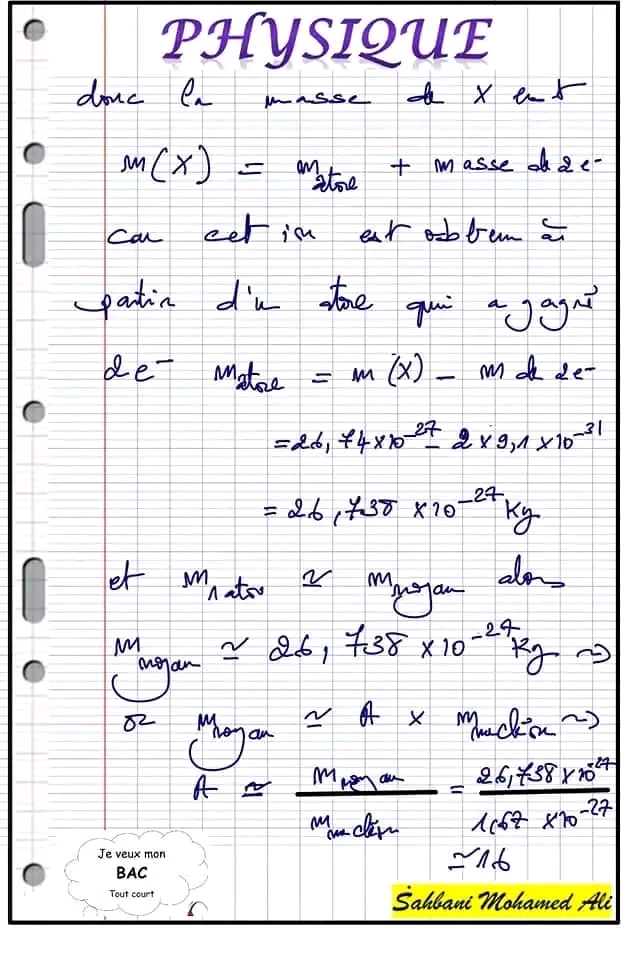 PHYSIQUE
donc la masse de X est
m(X) = m atome + masse de 2e-
car cet ion est obtenu à
partir d'un atome qui a gagné
2e- m atome = m(X) - m de 2e-
= 26,74 x 10^-27 - 2 x 9,1 x 10^-31
= 26,738 x 10^-27 Kg
et m 1 atome ≃ m noyau alors
m noyau ≃ 26,738 x 10^-27 Kg ⇒
or m noyau ≃ A x m nucléon ⇒
A ≃ m noyau / m nucléon = 26,738 x 10^-27 / 1,67 x 10^-27
≃ 16
Je veux mon
BAC
Tout court
Sahbani Mohamed Ali